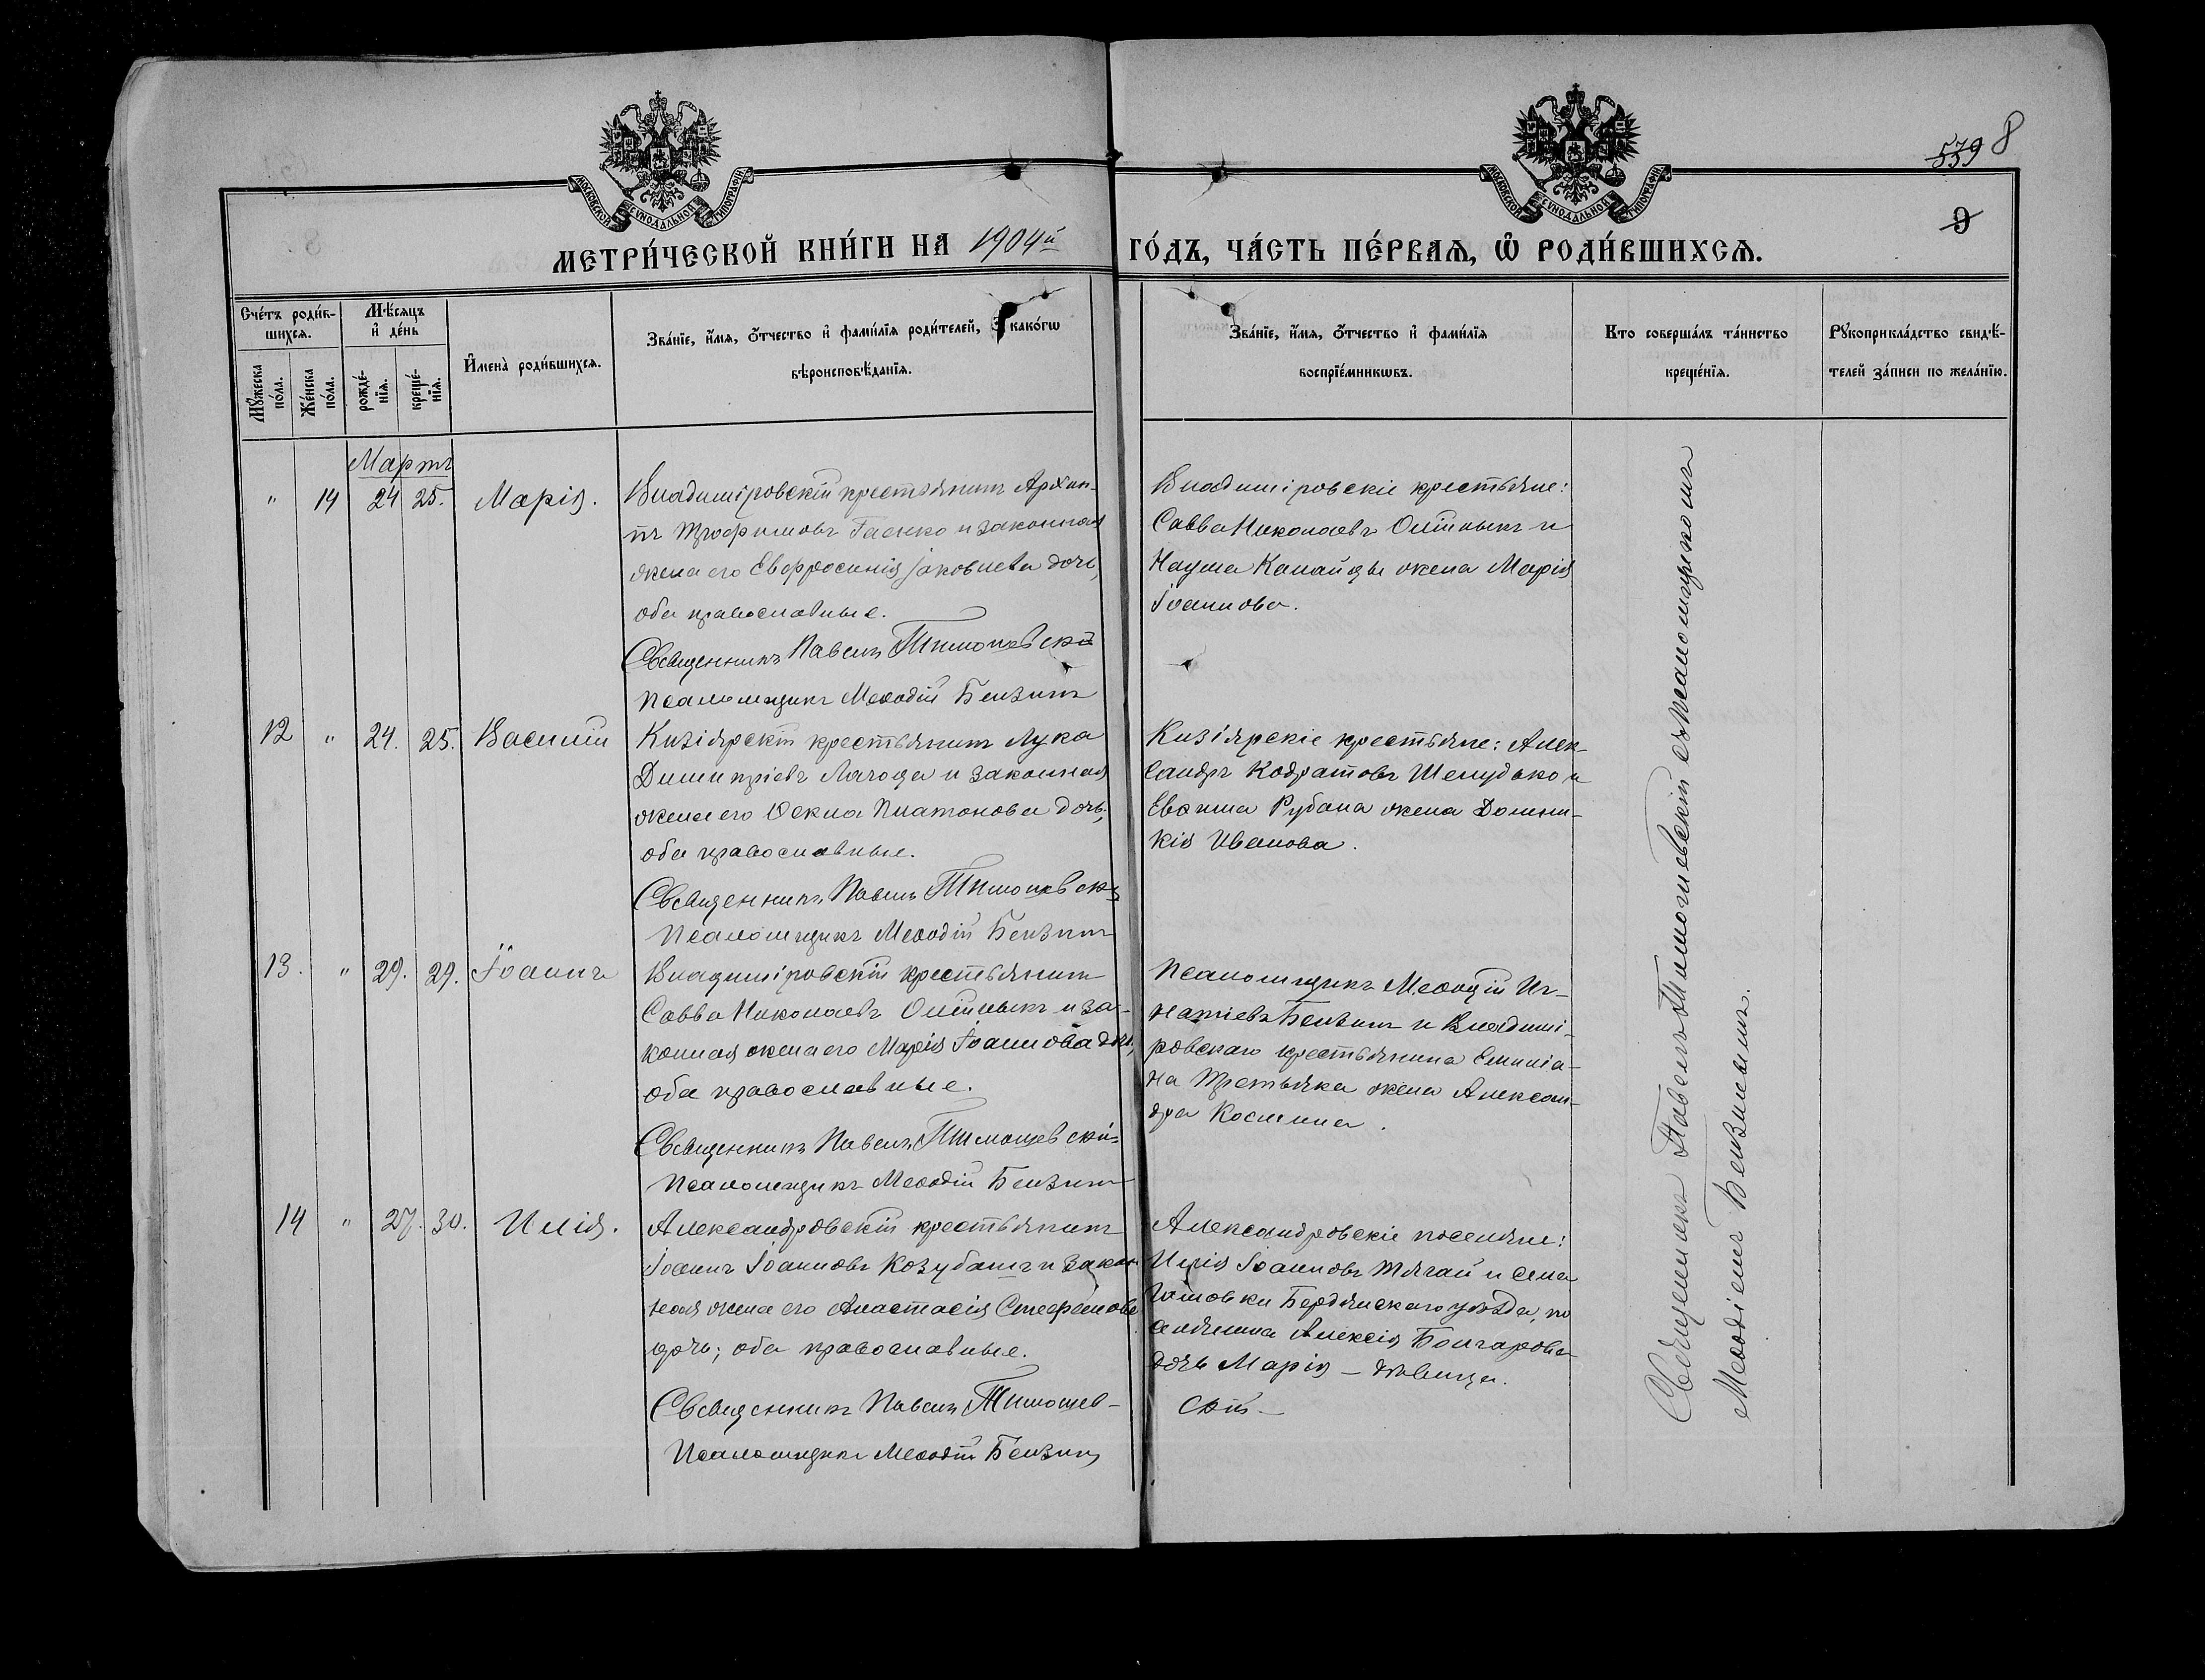 МОСКОВСКОЙ СѴНОДАЛЬНОЙ ТИПОГРАФІИ
МОСКОВСКОЙ СѴНОДАЛЬНОЙ ТИПОГРАФІИ
539 8
9
МЕТРИ́ЧЕСКОЙ КНИ́ГИ НА 1904й ГО́ДЪ, ЧА́СТЬ ПЕ́РВАѦ, Ѡ҆ РОДИ́ВШИХСѦ.
Сче́тъ роди́в-
шихсѧ.
Мꙋ́жеска по́ла.
Же́нска по́ла.
Мѣ́сѧцъ и҆ де́нь
рожде́-
нїѧ.
креще́-
нїѧ.
И҆мена̀ роди́вшихсѧ.
Зва́нїе, и҆́мѧ, ѻ҆́тчество и҆ фами́лїѧ роди́телей, и҆ како́гѡ
вѣроисповѣ́данїѧ.
Зва́нїе, и҆́мѧ, ѻ҆́тчество и҆ фами́лїѧ
воспрїе́мникѡвъ.
Кто̀ соверша́лъ та́инство
креще́нїѧ.
Рꙋкоприкла́дство свидѣ́-
телей за́писи по жела́нїю.
Мартъ
" 14 24 25. Марія.
Владиміровскій крестьянинъ Архип-
пъ Трофимовъ Гаенко и законная
жена его Евфросинія Іаковлева дочь,
оба православные.
Священникъ Павелъ Тимошевскій
Псаломщикъ Меѳодій Бензинъ
Владиміровскіе крестьяне:
Савва Николаевъ Олійныкъ и
Наума Канайды жена Марія
Іоаннова.
12 " 24. 25. Василій
Кизіярскій крестьянинъ Лука
Димитріевъ Лагода и законная
жена его Ѳекла Платонова дочь,
оба православные.
Священникъ Павелъ Тимошевскій
Псаломщикъ Меѳодій Бензинъ
Кизіярскіе крестьяне: Алек-
сандръ Кодратовъ Шелудько и
Евфима Рубана жена Домни-
кія Иванова.
13. " 29. 29. Іоаннъ
Владиміровскій крестьянинъ
Савва Николаевъ Олійныкъ и за-
конная жена его Марія Іоаннова дочь,
оба православные.
Священникъ Павелъ Тимошевскій
Псаломщикъ Меѳодій Бензинъ
Псаломщикъ Меѳодій Иг-
натіевъ Бензинъ и Владими-
ровскаго крестьянина Емиліа-
на Третьяка жена Алексан-
дра Космина.
14 " 27. 30. Илія.
Александровскій крестьянинъ
Іоаннъ Іоанновъ Козубашъ и закон
ная жена его Анастасія Стефанова
дочь; оба православные.
Священникъ Павелъ Тимошев-
скій
Псаломщикъ Меѳодій Бензинъ
Александровскіе поселяне:
Илія Іоанновъ Тягай и села
Бердянскаго уѣзда, по
селянина Алексія Болгарова
дочь Марія - дѣвица.
Священникъ Павелъ Тимошевскій съ псаломщикомъ
Меѳодіемъ Бензинымъ.